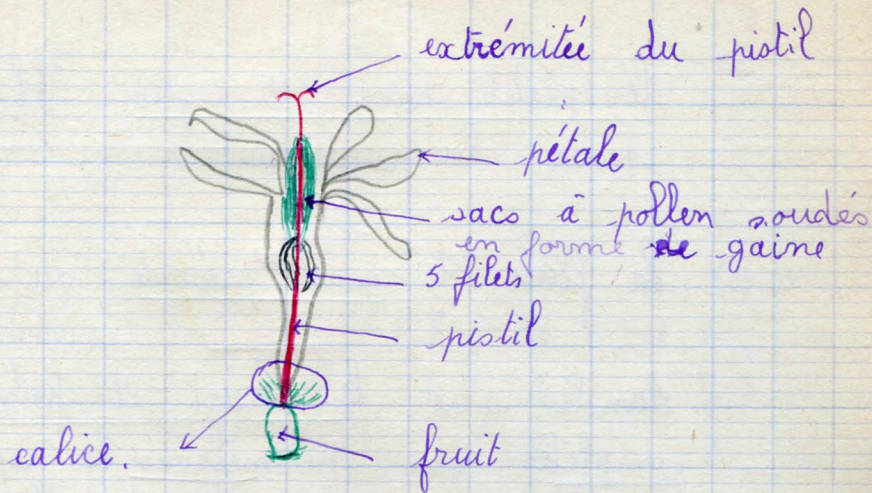 extrémitée du pistil
pétale
sacs à pollen soudés
en forme de gaine
5 filets
pistil
calice.
fruit